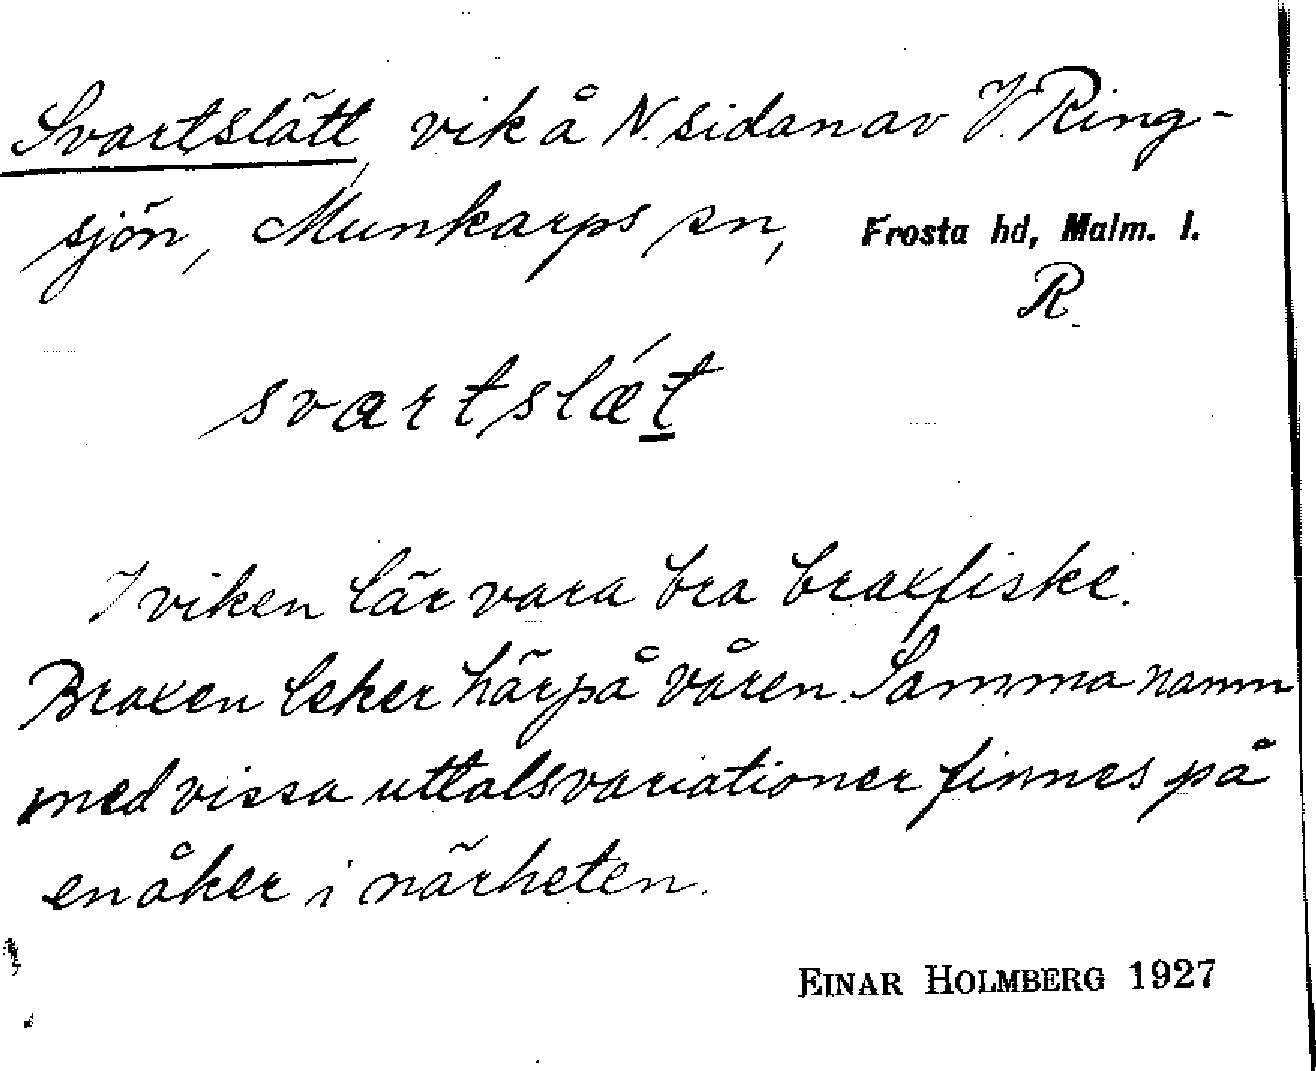 Svartslätt, vik å N. sidan av V. Ring-
sjön, Munkarps sn, Frosta hd, Malm. l.
R
svartslæ´t
I viken lär vara bra braxfiske.
Braxen leker här på våren. Samma namn
med vissa uttalsvariationer finnes på
en åker i närheten.
EINAR HOLMBERG 1927